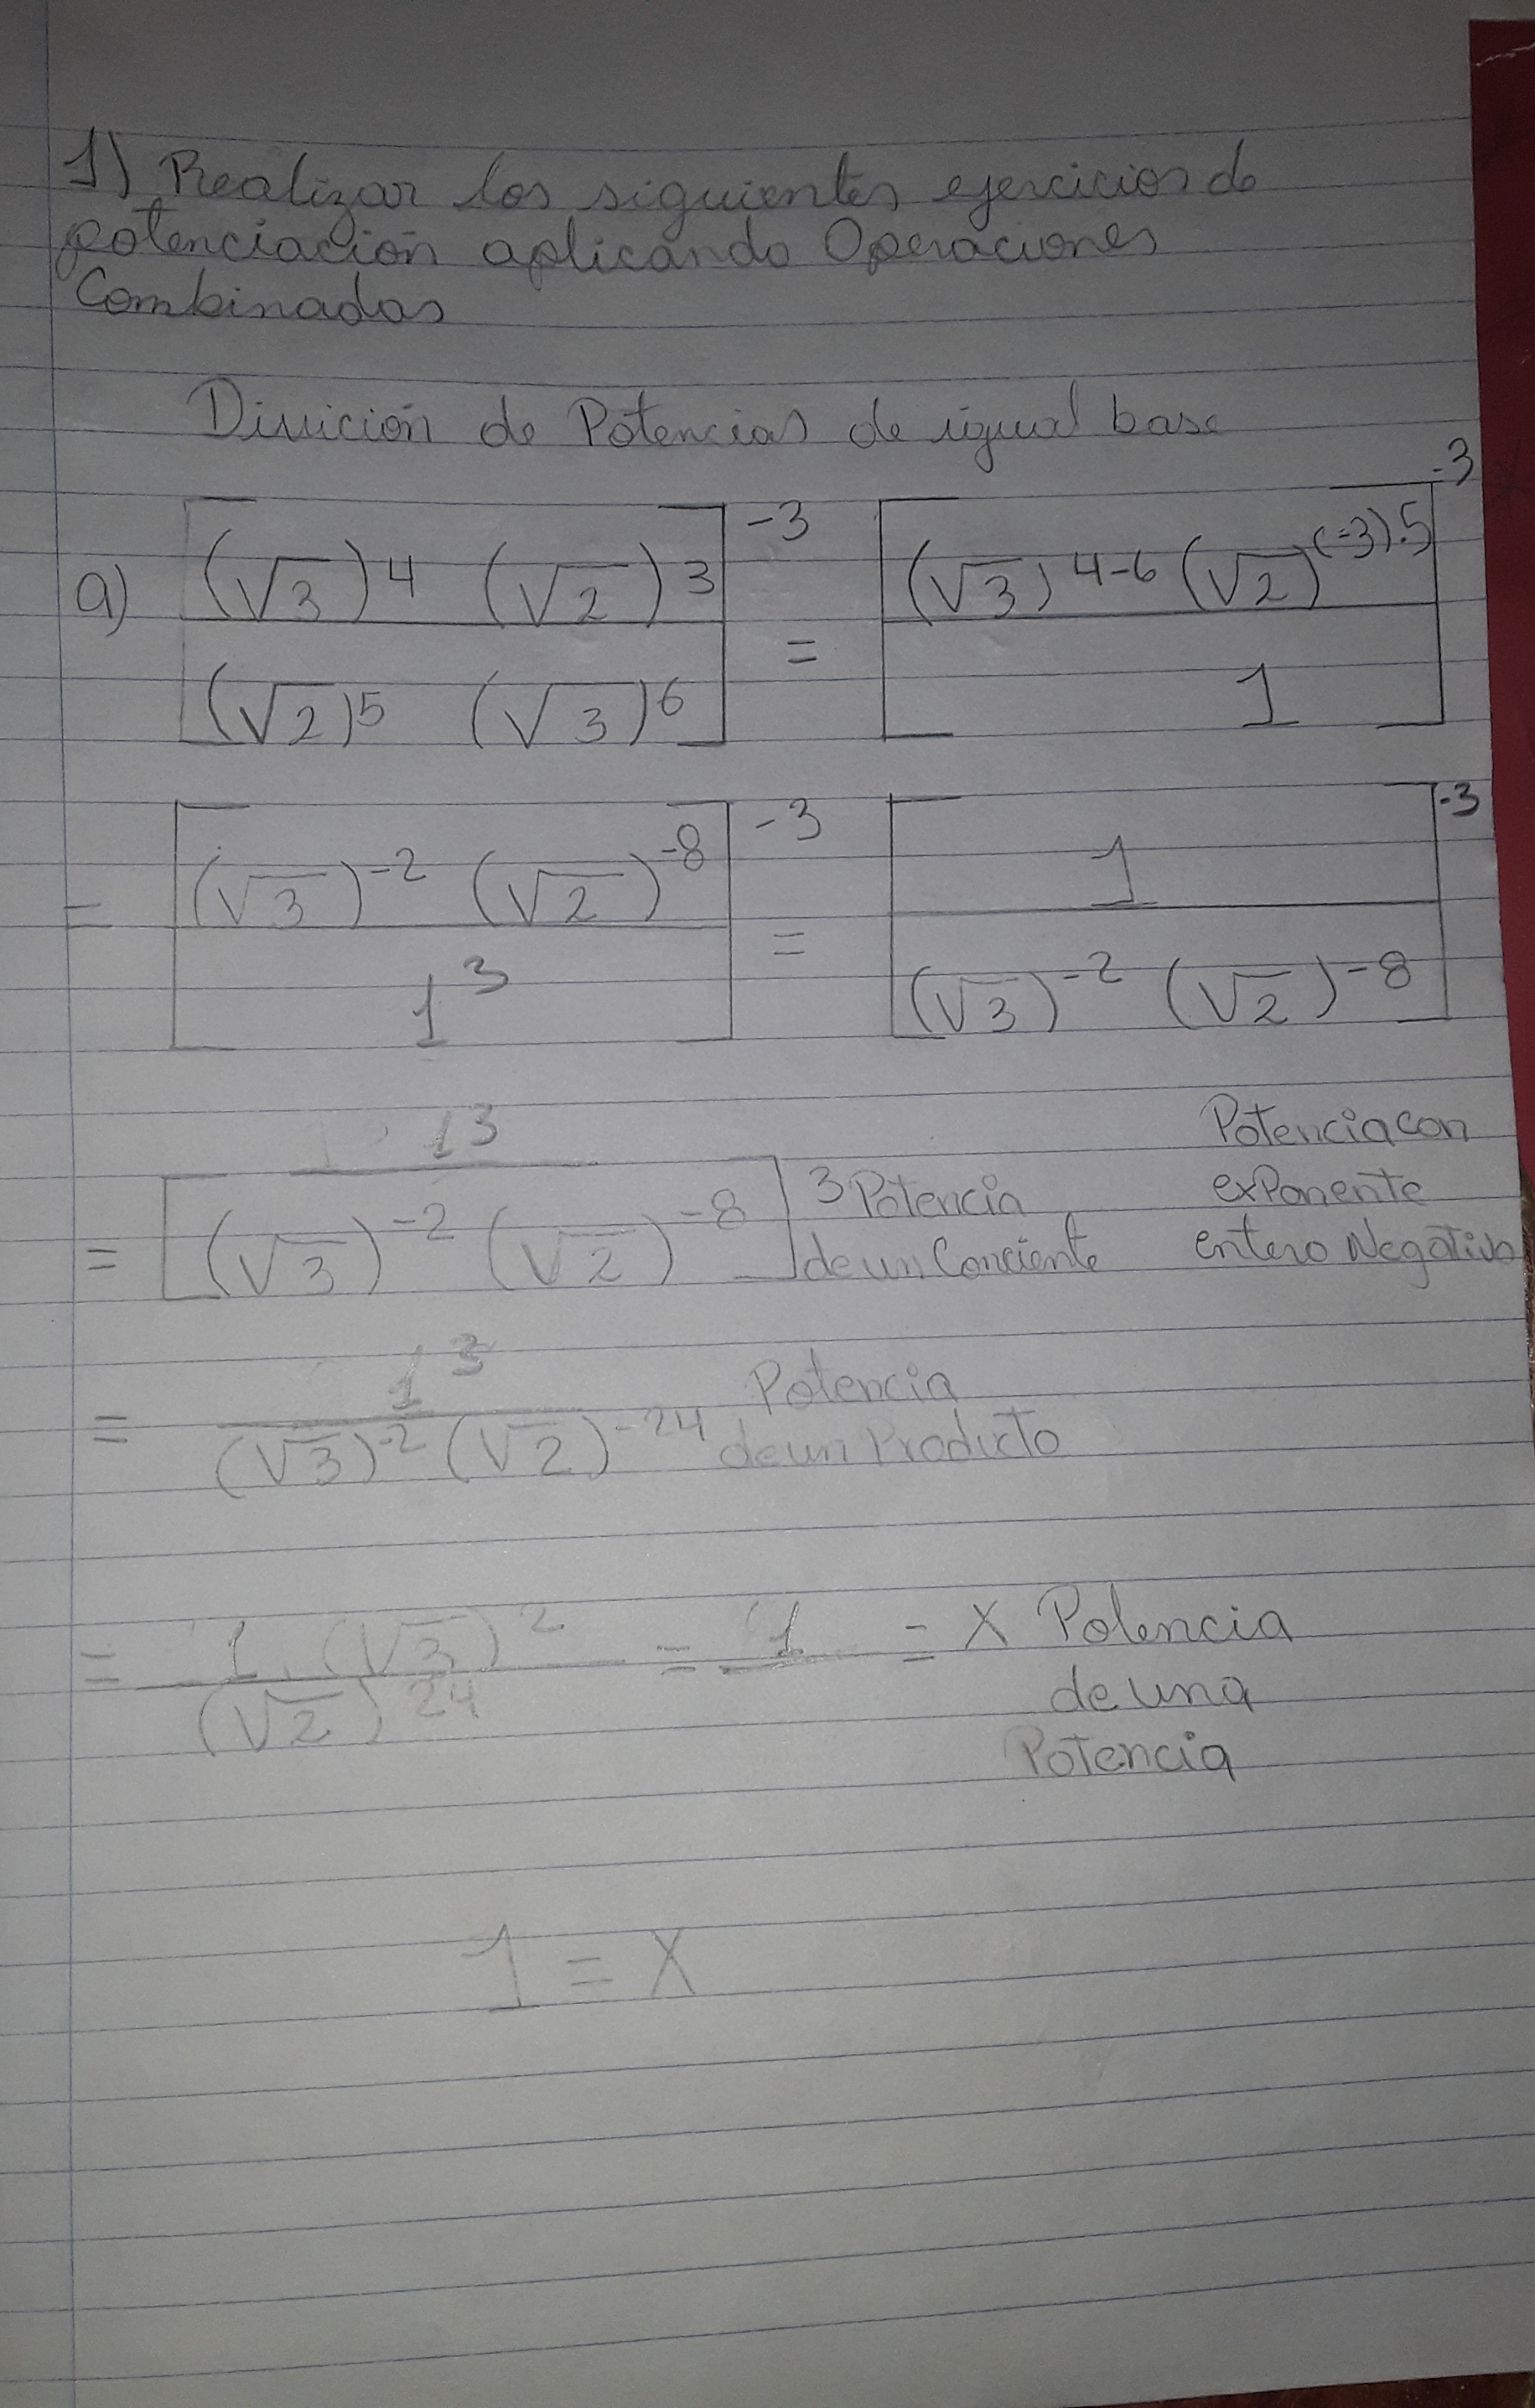 1) Realizar los siguientes ejercicios de
potenciación aplicando Operaciones
Combinadas
Divición de Potencias de igual base
a) [(√3)^4 (√2)^3 / (√2)^5 (√3)^6]^-3 = [(√3)^4-6 (√2)^(-3).5 / 1]^-3
= [(√3)^-2 (√2)^-8 / 1^3]^-3 = [1 / (√3)^-2 (√2)^-8]^-3
= 1^3 / [(√3)^-2 (√2)^-8]^3 Potencia de un Conciente Potencia con exponente entero Negativo
= 1^3 / (√3)^-2 (√2)^-24 Potencia de un Producto
= 1.(√3)^2 / (√2)^24 = 1 = X Potencia
de una
Potencia
1 = X